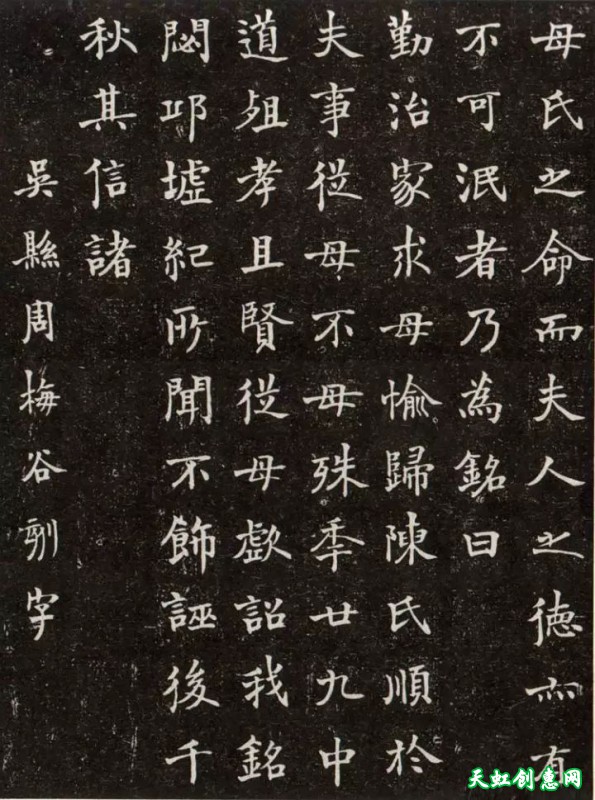 母氏之命而夫人之德亦有
不可泯者乃為銘曰
勤治家求母愉歸陳氏順於
夫事從母不母殊秊廿九中
道殂孝且賢從母歔詔我銘
閟邛墟紀所聞不飾誣後千
秋其信諸
吳縣周梅谷刻字
天虹创意网